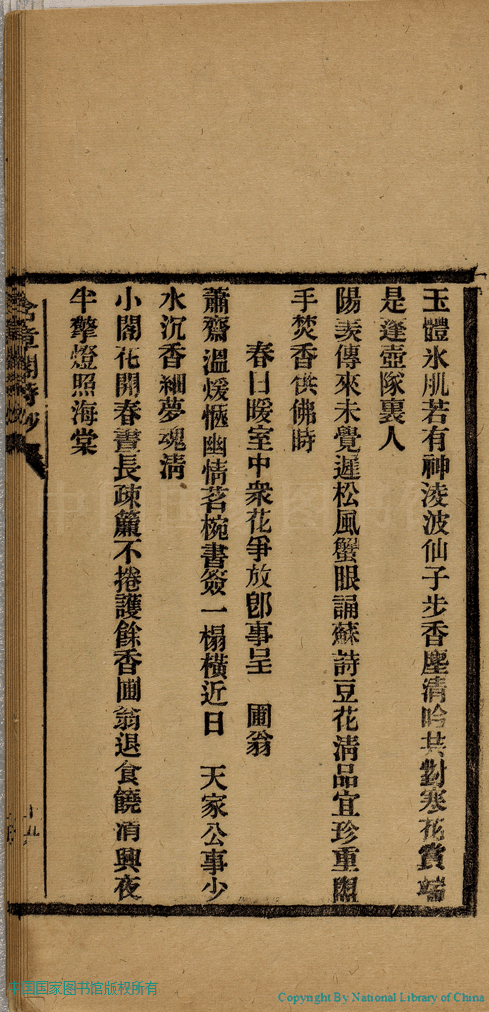 玉體氷肌若有神淩波仙子步香塵清吟共對寒花賞端
是蓬壺隊裏人
陽羨傳來未覺遲松風蟹眼誦蘇詩豆花清品宜珍重盥
手焚香供佛時
春日暖室中衆花爭放卽事呈　圃翁
蕭齋溫煖愜幽情茗椀書簽一榻橫近日　天家公事少
水沉香細夢魂清
小閣花開春晝長疎簾不捲護餘香圃翁退食饒清興夜
半擎燈照海棠
閣詩鈔
十五
中国国家图书馆版权所有
Copyright By National Library of China